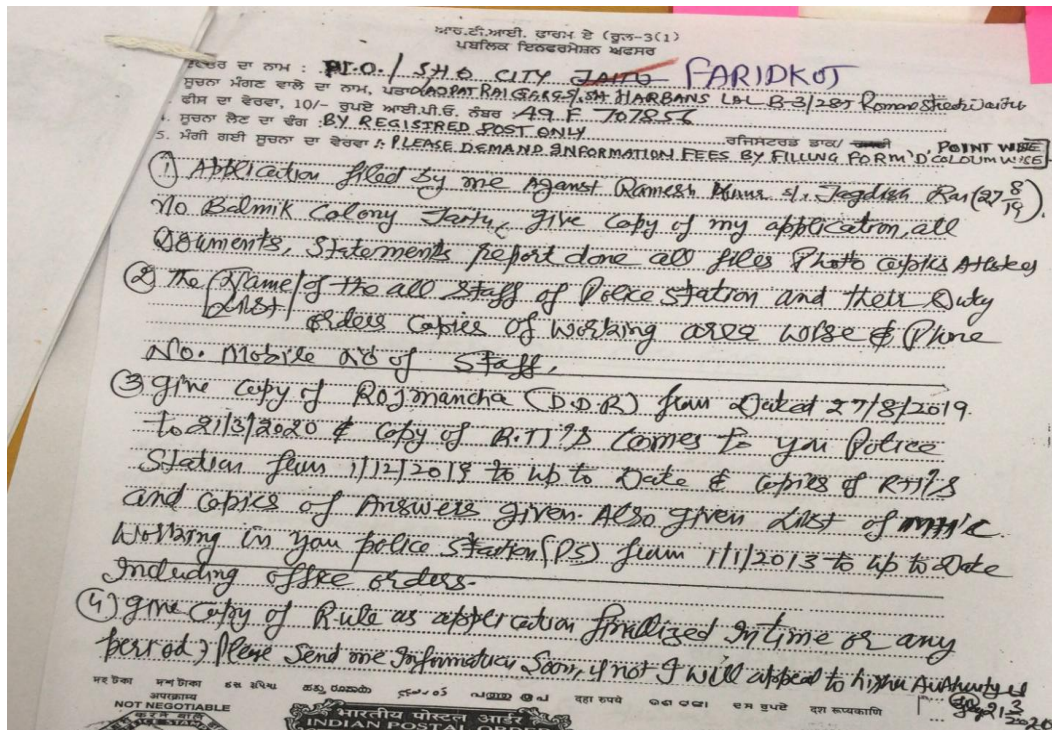 ਆਰ.ਟੀ.ਆਈ. ਫਾਰਮ ਏ (ਰੂਲ-3(1)
ਪਬਲਿਕ ਇਨਫਰਮੇਸ਼ਨ ਅਫਸਰ
ਦਾ ਨਾਮ : P.I.O. / SHO CITY JAITU FARIDKOT
ਸੂਚਨਾ ਮੰਗਣ ਵਾਲੇ ਦਾ ਨਾਮ, ਪਤਾ LAJPAT RAI GARG S/. SH HARBANS LAL B-3/285 Street Jaitu
ਫੀਸ ਦਾ ਵੇਰਵਾ, 10/- ਰੁਪਏ ਆਈ.ਪੀ.ਓ. ਨੰਬਰ : 49 F 707856
4. ਸੂਚਨਾ ਲੈਣ ਦਾ ਢੰਗ : BY REGISTRED POST ONLY ਰਜਿਸਟਰਡ ਡਾਕ/
5. ਮੰਗੀ ਗਈ ਸੂਚਨਾ ਦਾ ਵੇਰਵਾ :- PLEASE DEMAND INFORMATION FEES BY FILLING FORM 'D' COLOUMWISE, POINT WISE
(1) Application filed by me Against Ramesh Kumar s/. Jagdish Rai (27/8/19).
No Balmik Colony Jaitu, give copy of my application, all
Documents, Statements report done all files Photo copies
(2) The Name/List of the all Staff of Police Station and their Duty
orders copies of working area wise & Phone
No. Mobile No of Staff.
(3) give copy of Rojmancha (D.D.R) from Dated 27/8/2019
to 21/3/2020 & copy of R.TI'S comes to you Police
Station from 1/12/2019 to up to Date & copies of RTI'S
and copies of Answers given. Also given List of MHC
working in you police Station (PS) from 1/1/2013 to up to Date
Including office orders.
(4) give copy of Rule as application finallized Intime or any
period) Please Send me Information Soon, if not I will appeal to higher Authority
21/3/2020
ਦਸ ਰੁਪਏ दहा रुपये दश रूप्यकाणि
अपक्राम्य
NOT NEGOTIABLE
भारतीय पोस्टल आर्डर
INDIAN POSTAL ORDER